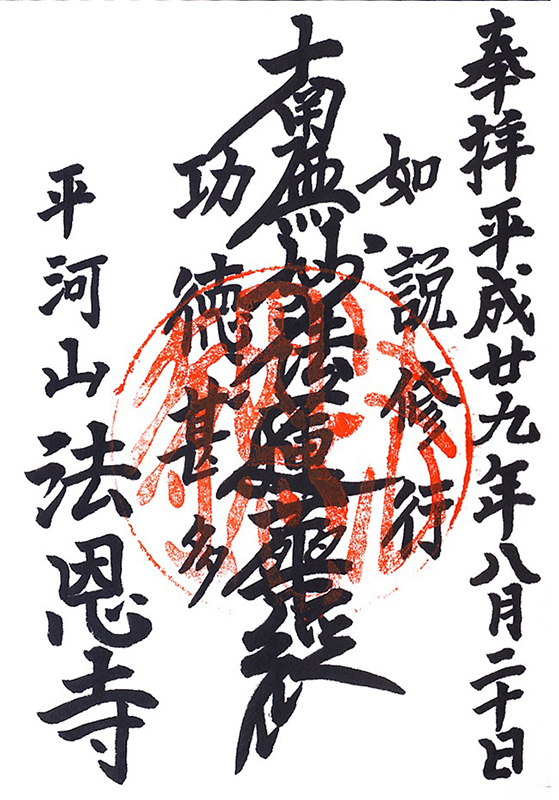 奉拝平成廿九年八月二十日
如説修行
南無妙法蓮華経
功徳甚多
平河山法恩寺